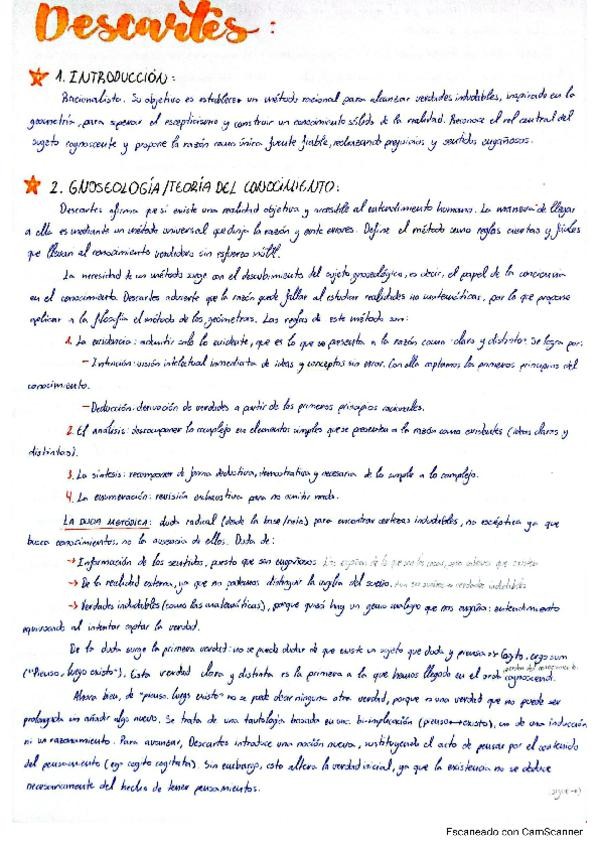 Descartes:
1. INTRODUCCIÓN:
Racionalista. Su objetivo es establecer un método racional para alcanzar verdades indudables, inspirado en la
geometría, para superar el escepticismo y construir un conocimiento sólido de la realidad. Reconoce el rol central del
sujeto cognoscente y propone la razón como única fuente fiable, rechazando prejuicios y sentidos engañosos.
2. GNOSEOLOGÍA/TEORÍA DEL CONOCIMIENTO:
Descartes afirma que sí existe una realidad objetiva y accesible al entendimiento humano. La manera de llegar
a ella es mediante un método universal que dirija la razón y evite errores. Define el método como reglas ciertas y fáciles
que llevan al conocimiento verdadero sin esfuerzo inútil.
La necesidad de un método surge con el descubrimiento del sujeto gnoseológico, es decir, el papel de la conciencia
en el conocimiento. Descartes advierte que la razón puede fallar al estudiar realidades no matemáticas, por lo que propone
aplicar a la filosofía el método de los geómetras. Las reglas de este método son:
1. La evidencia: admitir solo lo evidente, que es lo que se presenta a la razón como "claro y distinto". Se logra por:
- Intuición: visión intelectual inmediata de ideas y conceptos sin error. Con ella captamos los primeros principios del
conocimiento.
- Deducción: derivación de verdades a partir de los primeros principios racionales.
2. El análisis: descomponer lo complejo en elementos simples que se presentan a la razón como evidentes (ideas claras y
distintas).
3. La síntesis: recomponer de forma deductiva, demostrativa y necesaria de lo simple a lo complejo.
4. La enumeración: revisión exhaustiva para no omitir nada.
LA DUDA METÓDICA: duda radical (desde la base/raíz) para encontrar certezas indudables, no escéptica ya que
busca conocimientos, no la ausencia de ellos. Duda de:
→ Información de los sentidos, puesto que son engañosos.
→ De la realidad externa, ya que no podemos distinguir la vigilia del sueño.
→ Verdades indudables (como las matemáticas), porque quizá hay un genio maligno que nos engaña: entendimiento
equivocado al intentar captar la verdad.
De la duda surge la primera verdad: no se puede dudar de que existe un sujeto que duda y piensa → Cogito, ergo sum
("Pienso, luego existo"). Esta verdad clara y distinta es la primera a la que hemos llegado en el orden cognoscendi.
Ahora bien, de "pienso luego existo" no se puede sacar ninguna otra verdad, porque es una verdad que no puede ser
prolongada sin añadir algo nuevo. Se trata de una tautología basada en una bi-implicación (pienso↔existo), no de una inducción
ni un razonamiento. Para avanzar, Descartes introduce una noción nueva, sustituyendo el acto de pensar por el contenido
del pensamiento (ego cogito cogitata). Sin embargo, esto altera la verdad inicial, ya que la existencia no se deduce
necesariamente del hecho de tener pensamientos.
(sigue →)
Escaneado con CamScanner